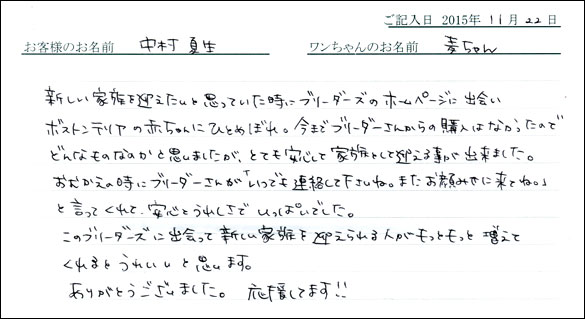 ご記入日 2015年 11月 22日
お客様のお名前 中村 夏生 ワンちゃんのお名前 麦ちゃん
新しい家族を迎えたいと思っていた時にブリーダーズのホームページに出会い
ボストンテリアの赤ちゃんにひとめぼれ。今までブリーダーさんからの購入はなかったので
どんなものなのかと思いましたが、とても安心して家族として迎える事が出来ました。
おむかえの時にブリーダーさんが「いつでも連絡して下さいね。またお顔みせに来てね。」
と言ってくれて、安心とうれしさでいっぱいでした。
このブリーダーズに出会って新しい家族を迎えられる人がもっともっと増えて
くれるとうれしいと思います。
ありがとうございました。 応援してます!!